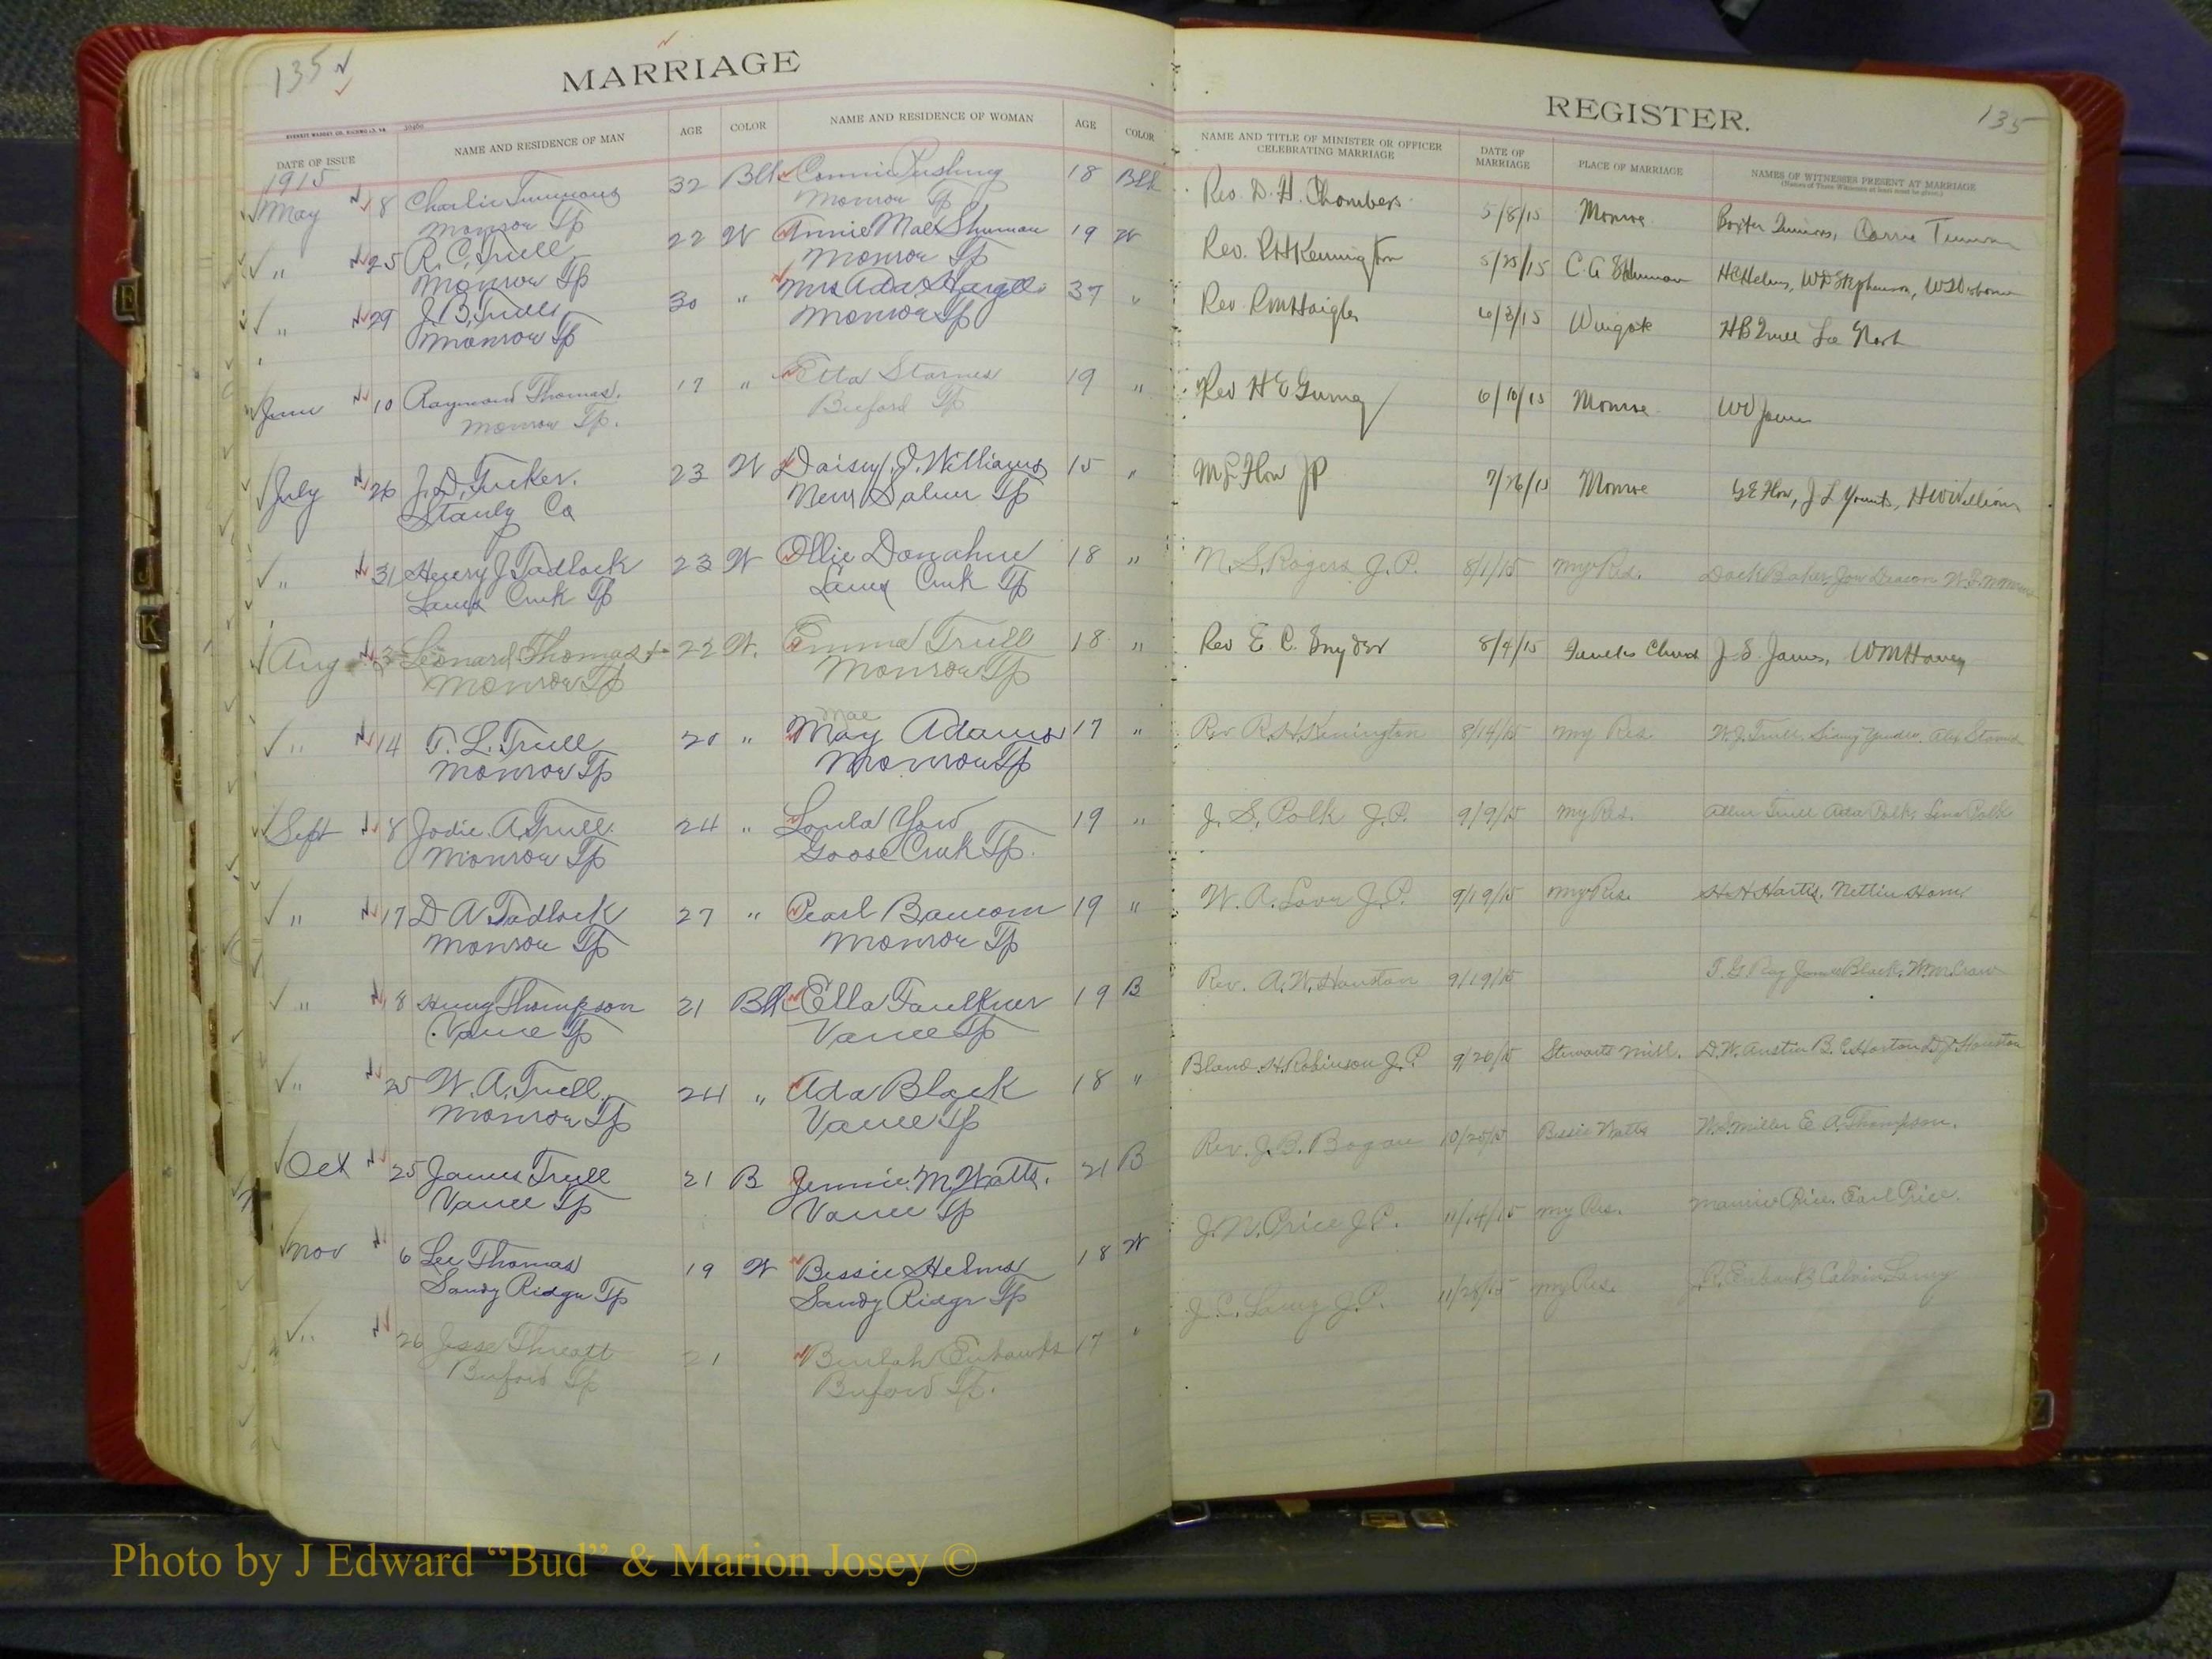 135
MARRIAGE
EVERETT WADDEY CO. RICHMOND, VA.
DATE OF ISSUE
NAME AND RESIDENCE OF MAN
AGE
COLOR
NAME AND RESIDENCE OF WOMAN
AGE
COLOR
1915
May 8 Charlie Timmons 32 Blk Connie Rushing 18 Blk
Monroe Tp Monroe Tp
" 25 R. C. Trull 22 W Annie Mae Shuman 19 W
Monroe Tp Monroe Tp
" 29 J. B. Trull 30 " Mrs Ada Hargett 37 "
Monroe Tp Monroe Tp
June 10 Raymond Thomas. 17 " Etta Starnes 19 "
Monroe Tp. Buford Tp
July 26 J. D. Tucker. 23 W Daisey J. Williams 15 "
Stanly Co New Salem Tp
" 31 Henry J Tadlock 23 W Ollie Donahue 18 "
Lanes Creek Tp Lanes Creek Tp
Aug 3 Leonard Thomas 22 W. Emma Trull 18 "
Monroe Tp Monroe Tp
Mae
" 14 T. L. Trull 20 " May Adams 17 "
Monroe Tp Monroe Tp
Sept 8 Jodie. A. Trull. 24 " Loula Yow 19 "
Monroe Tp Goose Creek Tp.
" 17 D A Tadlock 27 " Pearl Baucom 19 "
Monroe Tp Monroe Tp
" 18 Henry Thompson 21 Blk Ella Faulkner 19 B
Vance Tp Vance Tp
" 25 W. A. Trull. 24 " Ada Black 18 "
Monroe Tp Vance Tp
Oct 25 James Trull 21 B Jennie. M. Watts. 21 B
Vance Tp Vance Tp
Nov 6 Lee Thomas 19 W Bessie Helms 18 W
Sandy Ridge Tp Sandy Ridge Tp
" 26 Jesse Threatt 21 Beulah Eubanks 17 "
Buford Tp Buford Tp.
REGISTER.
135
NAME AND TITLE OF MINISTER OR OFFICER
CELEBRATING MARRIAGE
DATE OF
MARRIAGE
PLACE OF MARRIAGE
NAMES OF WITNESSES PRESENT AT MARRIAGE
(Names of Three Witnesses at least must be given.)
Rev. D. H. Chambers. 5/8/15 Monroe
Rev. R H Kennington 5/25/15 C. A Shuman H C Helms, W D Stephenson,
Rev. R M Haigler 6/3/15 Wingate H B Trull
Rev H E Gurney 6/10/15 Monroe W O Jones
M L Flow JP 7/26/15 Monroe G E Flow, J L Younts, H W Williams
N. S. Rogers J. P. 8/1/15 My Res.
Rev E C. Snyder 8/4/15 J. E. James,
Rev R. H. Kenington 8/14/15 My Res. W. J. Trull.
J. S. Polk J. P. 9/9/15 My Res. Ada Polk, Lena Polk
W. A. Love J. P. 9/19/15 My Res. H. H. Hartis,
Rev. A. W. Houston 9/19/15 T. G. Ray James Black,
Bland. H. Robinson J. P. 9/26/15 Stewarts Mill. D. W. Austin B. C. Horton D. J. Houston
Rev. J. B. Bogan 10/25/15 Bessie Watts W. L. Miller E. A. Thompson.
J. N. Price J. P. 11/14/15 My Res. Maurice Price. Earl Price.
J. C. Laney J. P. 11/28/15 My Res. Calvin Laney
E
J
K
Photo by J Edward “Bud” & Marion Josey ©